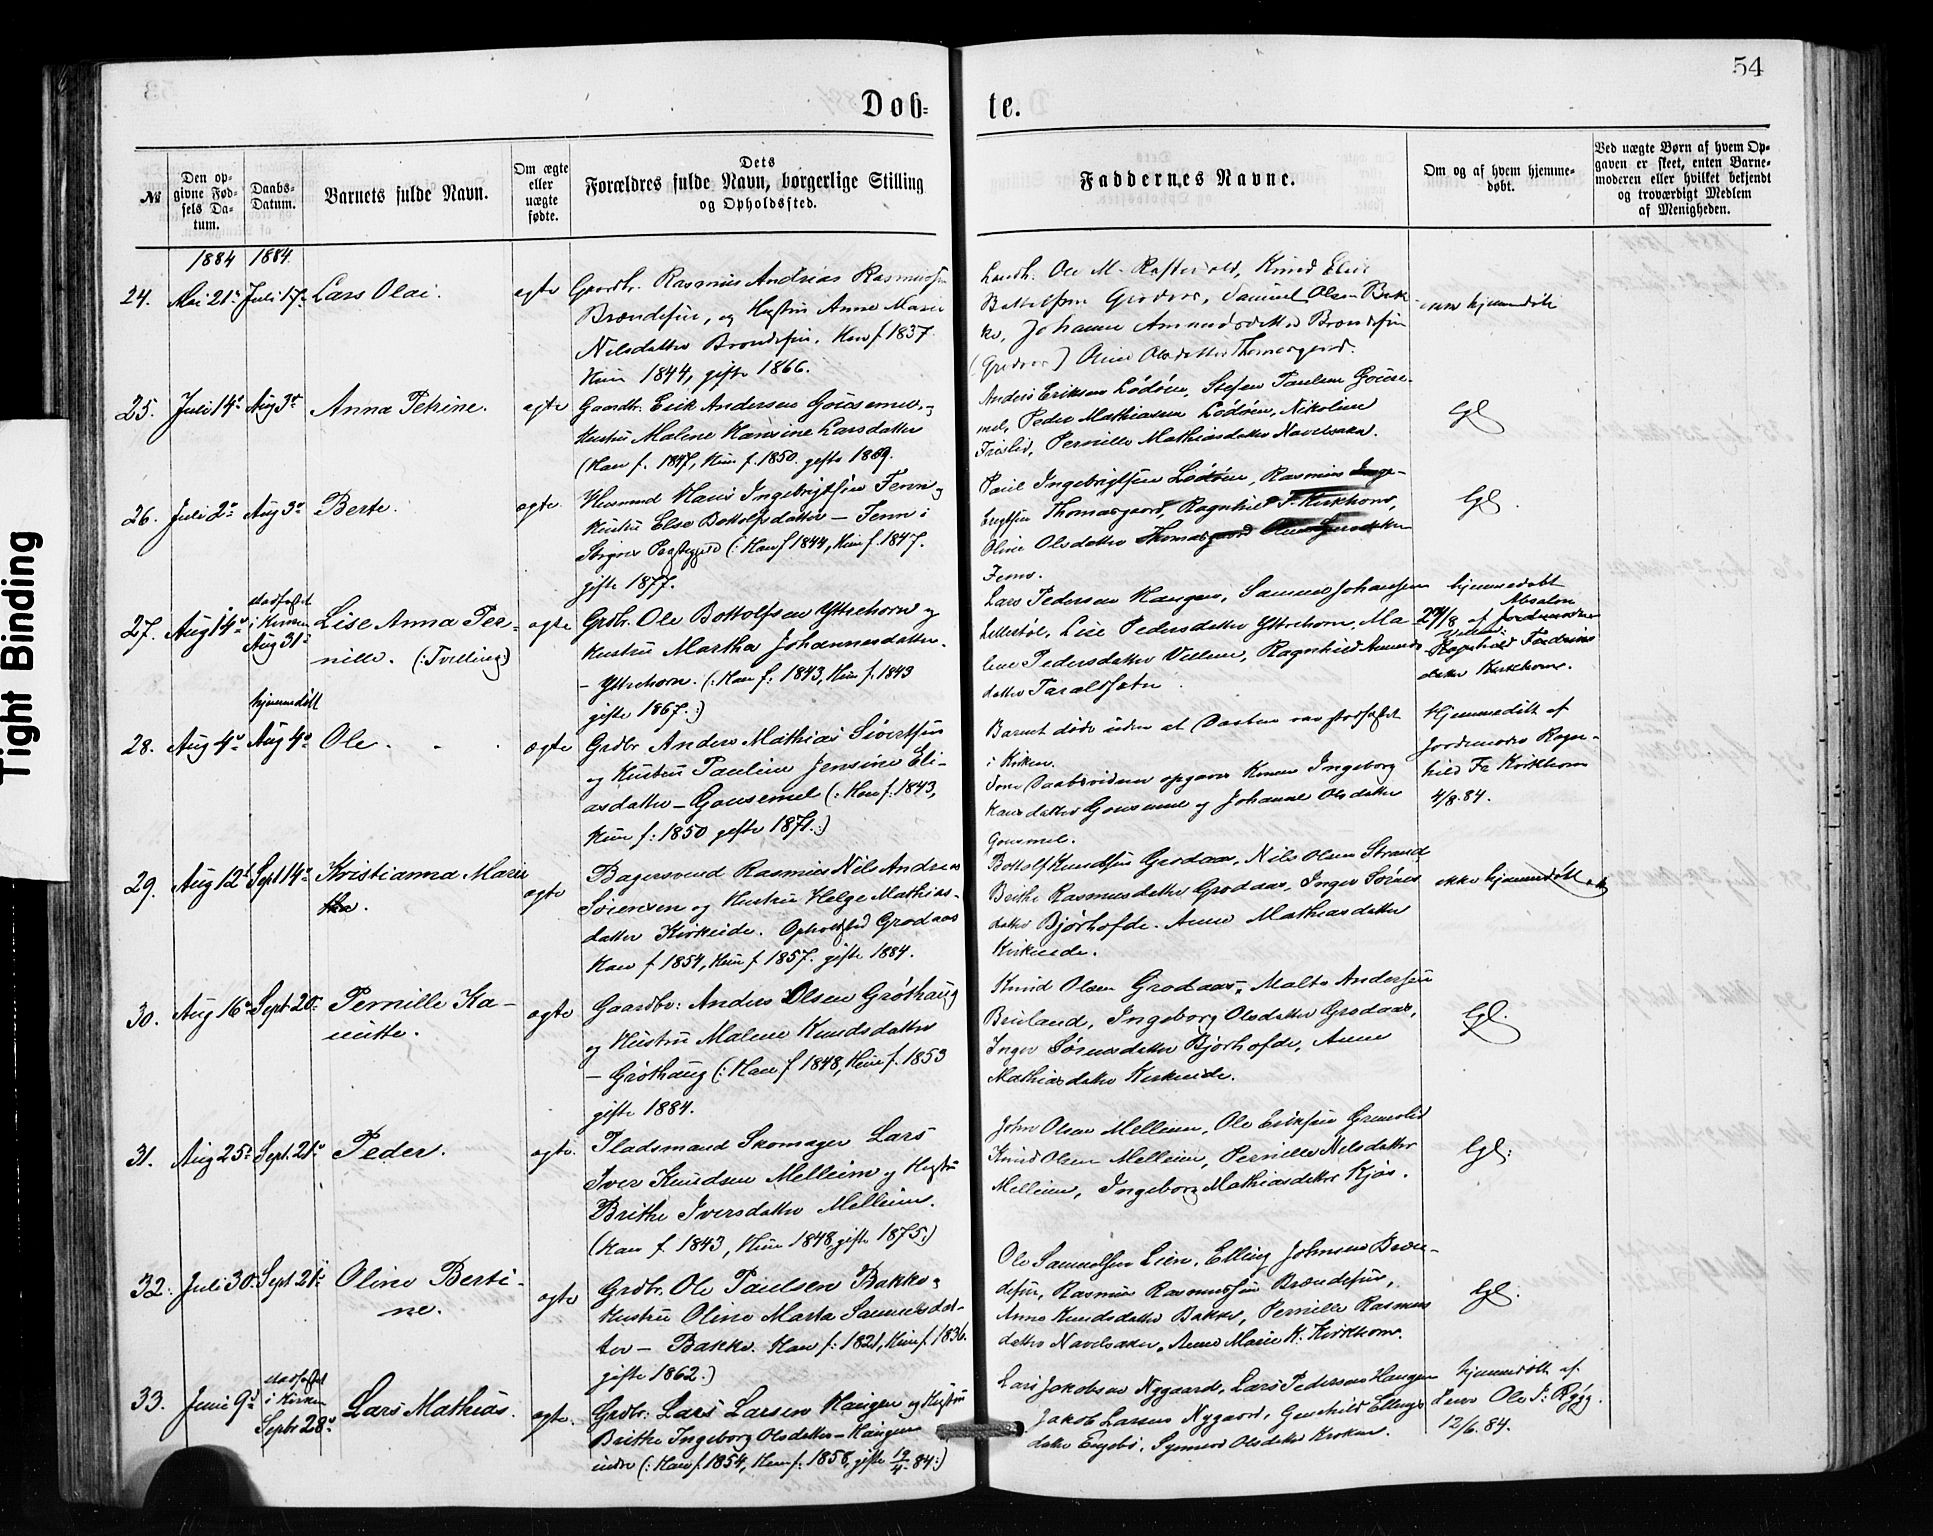 54
Døb-
te.
№
Den op-
givne Fød-
sels Da-
tum.
Daabs-
Datum.
Barnets fulde Navn.
Om ægte
eller
uægte
fødte.
Dets
Forældres fulde Navn, borgerlige Stilling
og Opholdssted.
Faddernes Navne.
Om og af hvem hjemme-
døbt.
Ved uægte Børn af hvem Op-
gaven er skeet, enten Barne-
moderen eller hvilket bekjendt
og troværdigt Medlem
af Menigheden.
1884 1884
24. Mai 21de Juli 17de Lars Olai. ægte
Gaardbr. Rasmus Andreas Rasmussen
Brændefur, og Hustru Anne Marie
Nilsdatter Brændefur. Han f 1837.
Hun 1844, gifte 1866.
Ole M. Knud
Bottolfsen Grodaas, Samuel Olsen Bak-
ke, Johanne Amundsdatter Brændefur
(Grodaas) Oline Olsdatter Thomasgaard.
hjemmedøbt
25. Juli 14de Aug 3de Anna Petrine. ægte
Gaardbr. Erik Andersen Gousemel og
Hustru Malene Hansine Larsdatter
(Han f. 1847, Hun f. 1850. gifte 1869.
Anders Eriksen Lødøen, Stefen Paulsen Gouse-
mel, Peder Mathiasen Lødøen, Nikoline
Frislid, Pernille Mathiasdatter Navelsaker.
lgl
26. Juli 2de Aug 3de Berte. ægte.
Husmand Hans Ingebrigtsen Fenn og
Hustru Else Bottolfsdatter – Fenn i
(: Han f 1844, Hun f. 1847.
gifte 1877.
Paul Ingebrigtsen Lødøen, Rasmus Inge-
brigtsen Thomasgaard, Ragnhild F. Kirkhorn,
Oline Olsdatter Thomasgaard
Fenns.
lgl.
27. Aug 14de stadfæstet
i Kirken
Aug 31te
Lise Anna Per-
nille. (: Tvilling) ægte
Grdbr. Ole Bottolfsen Yttrehorn og
Hustru Martha Johannesdatter
– Yttrehorn. (: Han f. 1843, Hun f. 1843
gifte 1867. :)
Lars Pedersen Haugen, Samuel Johansen
Lillestøl, Lise Pedersdatter Yttrehorn, Ma-
lene Pedersdatter Villem, Ragnhild Amunds-
datter Taraldsæter.
hjemmedøbt
24/8 af Absalon Jordemoder
Ragnhild Fredriks
datter Kirkhorn.
28. Aug 4de hjemmedøbt
Aug 4de Ole. ægte
Grdbr Anders Mathias Sivertsen
og Hustru Pauline Jensine Eli-
asdatter – Gousemel (: Han f. 1843,
Hun f: 1850 gifte 1871. :)
Barnet døde uden at Daaben var stadfæstet
i Kirken.
Som Daabsvidner opgaves Konen Ingeborg
Hansdatter Gousemel og Johanne Olsdatter
Gousemel.
Hjemmedøbt af
Jordemoder Ragn-
hild Fr Kirkhorn
4/8. 84.
29. Aug 12te Sept 14de Kristianna Marie
ægte
Bagersvend Rasmus Nils Andreas
Sørensen og Hustru Helge Mathias-
datter Kirkeide. Opholdssted Grodaas
Han f 1854, Hun f 1857. gifte 1884.
Bottolf Knudsen Grodaas, Nils Olsen Strand
Brithe Rasmusdatter Grodaas, Inger Sørens
datter Bjørhofde. Anne Mathiasdatter
Kirkeide.
ikke hjemmedøbt
30. Aug 16de Sept. 20de Pernille Ka-
nutte. ægte
Gaardbr: Anders Olsen Grøthaug
og Hustru Malene Knudsdatter
– Grøthaug (: Han f 1848, Hun f. 1853
gifte 1884.
Knud Olsen Grodaas, Malte Andersen
Bruland, Ingeborg Olsdatter Grodaas,
Inger Sørensdatter Bjørhofde, Anne
Mathiasdatter Kirkeide.
lgl.
31. Aug 25de Sept. 21de Peder. ægte.
Pladsmand Skomager Lars
Iver Knudsen Melleim og Hustru
Brithe Iversdatter Melleim.
(Han f. 1843, Hun 1848 gifte 1875.)
John Olsen Melleim, Ole Eriksen
Knud Olsen Melleim, Pernille Nilsdatter
Melleim, Ingeborg Mathiasdatter Kjøs.
lgl:
32. Juli 30de Sept 21de Oline Berti-
ne. ægte
Grdbr. Ole Paulsen Bakke og
Hustru Oline Marta Samuelsdat-
ter – Bakke. Han f: 1821, Hun f. 1836.
gifte 1862.)
Ole Samuelsen Lien, Elling Johnsen Bræn-
defur, Rasmus Rasmussen Brændefur,
Anne Knudsdatter Bakke, Pernille Rasmus
datter Navelsaker, Anne Marie K. Kirkhorn.
lgl.
33. Juni 9de stadfæstet
i Kirken
Septr 28de Lars Mathias. ægte.
Grdbr: Lars Larsen Haugen og Hustru
Brithe Ingeborg Olsdatter – Haugen
indre (: Han f. 1854, Hun f: 1858, gifte 12/4 84 :)
Lars Jakobsen Nygaard, Lars Pedersen Haugen
Jakob Larsen Nygaard, Gunhild Ellings
datter Engebø, Synneve Olsdatter Kroken.
hjemmedøbt af
Lærer Ole S: Rygg.
12/6. 84.
Tight Binding